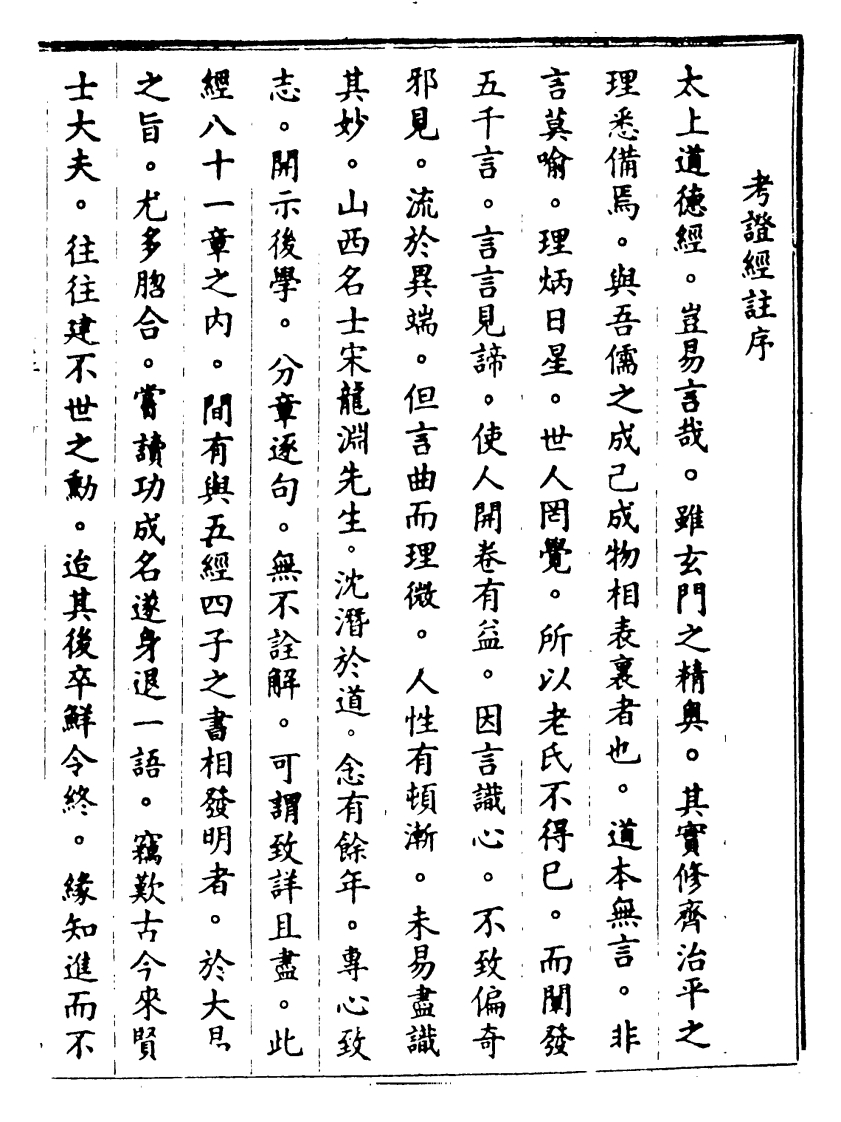 考證經註序
太上道德經。豈易言哉。雖玄門之精奧。其實修齊治平之
理悉備焉。與吾儒之成己成物相表裏者也。道本無言。非
言莫喻。理炳日星。世人罔覺。所以老氏不得已。而闡發
五千言。言言見諦。使人開卷有益。因言識心。不致偏奇
邪見。流於異端。但言曲而理微。人性有頓漸。未易盡識
其妙。山西名士宋龍淵先生。沈潛於道。念有餘年。專心致
志。開示後學。分章逐句。無不詮解。可謂致詳且盡。此
經八十一章之內。間有與五經四子之書相發明者。於大
之旨。尤多脗合。嘗讀功成名遂身退一語。竊歎古今來賢
士大夫。往往建不世之勳。迨其後卒鮮令終。緣知進而不